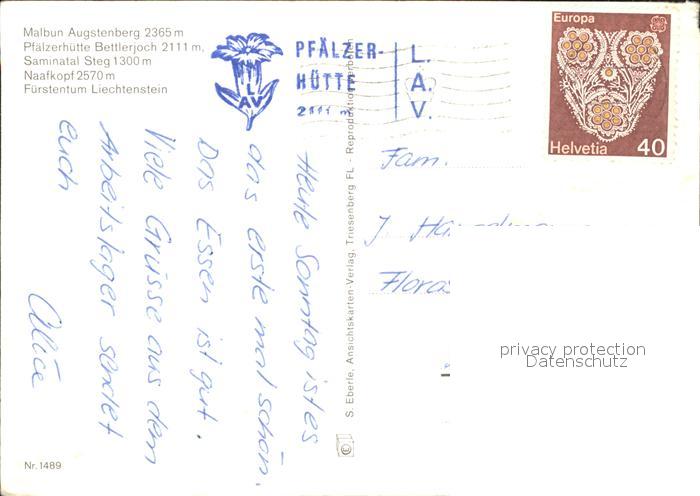 Malbun Augstenberg 2365 m
Pfälzerhütte Bettlerjoch 2111 m,
Saminatal Steg 1300 m
Naafkopf 2570 m
Fürstentum Liechtenstein
L
AV
PFÄLZER-
HÜTTE
2111 m
L.
A.
V.
Europa
Helvetia 40
Heute Sonntag ist es
das erste mal schön.
Das Essen ist gut.
Viele Grüsse aus dem
Arbeitslager sendet
euch
Alice
S. Eberle, Ansichtskarten-Verlag, Triesenberg FL - Reproduktion verboten
Fam.
J.
privacy protection
Datenschutz
Nr. 1489